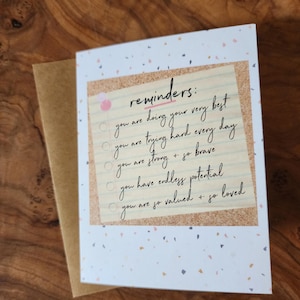 reminders:
you are doing your very best
you are trying hard every day
you are strong + so brave
you have endless potential
you are so valued + so loved